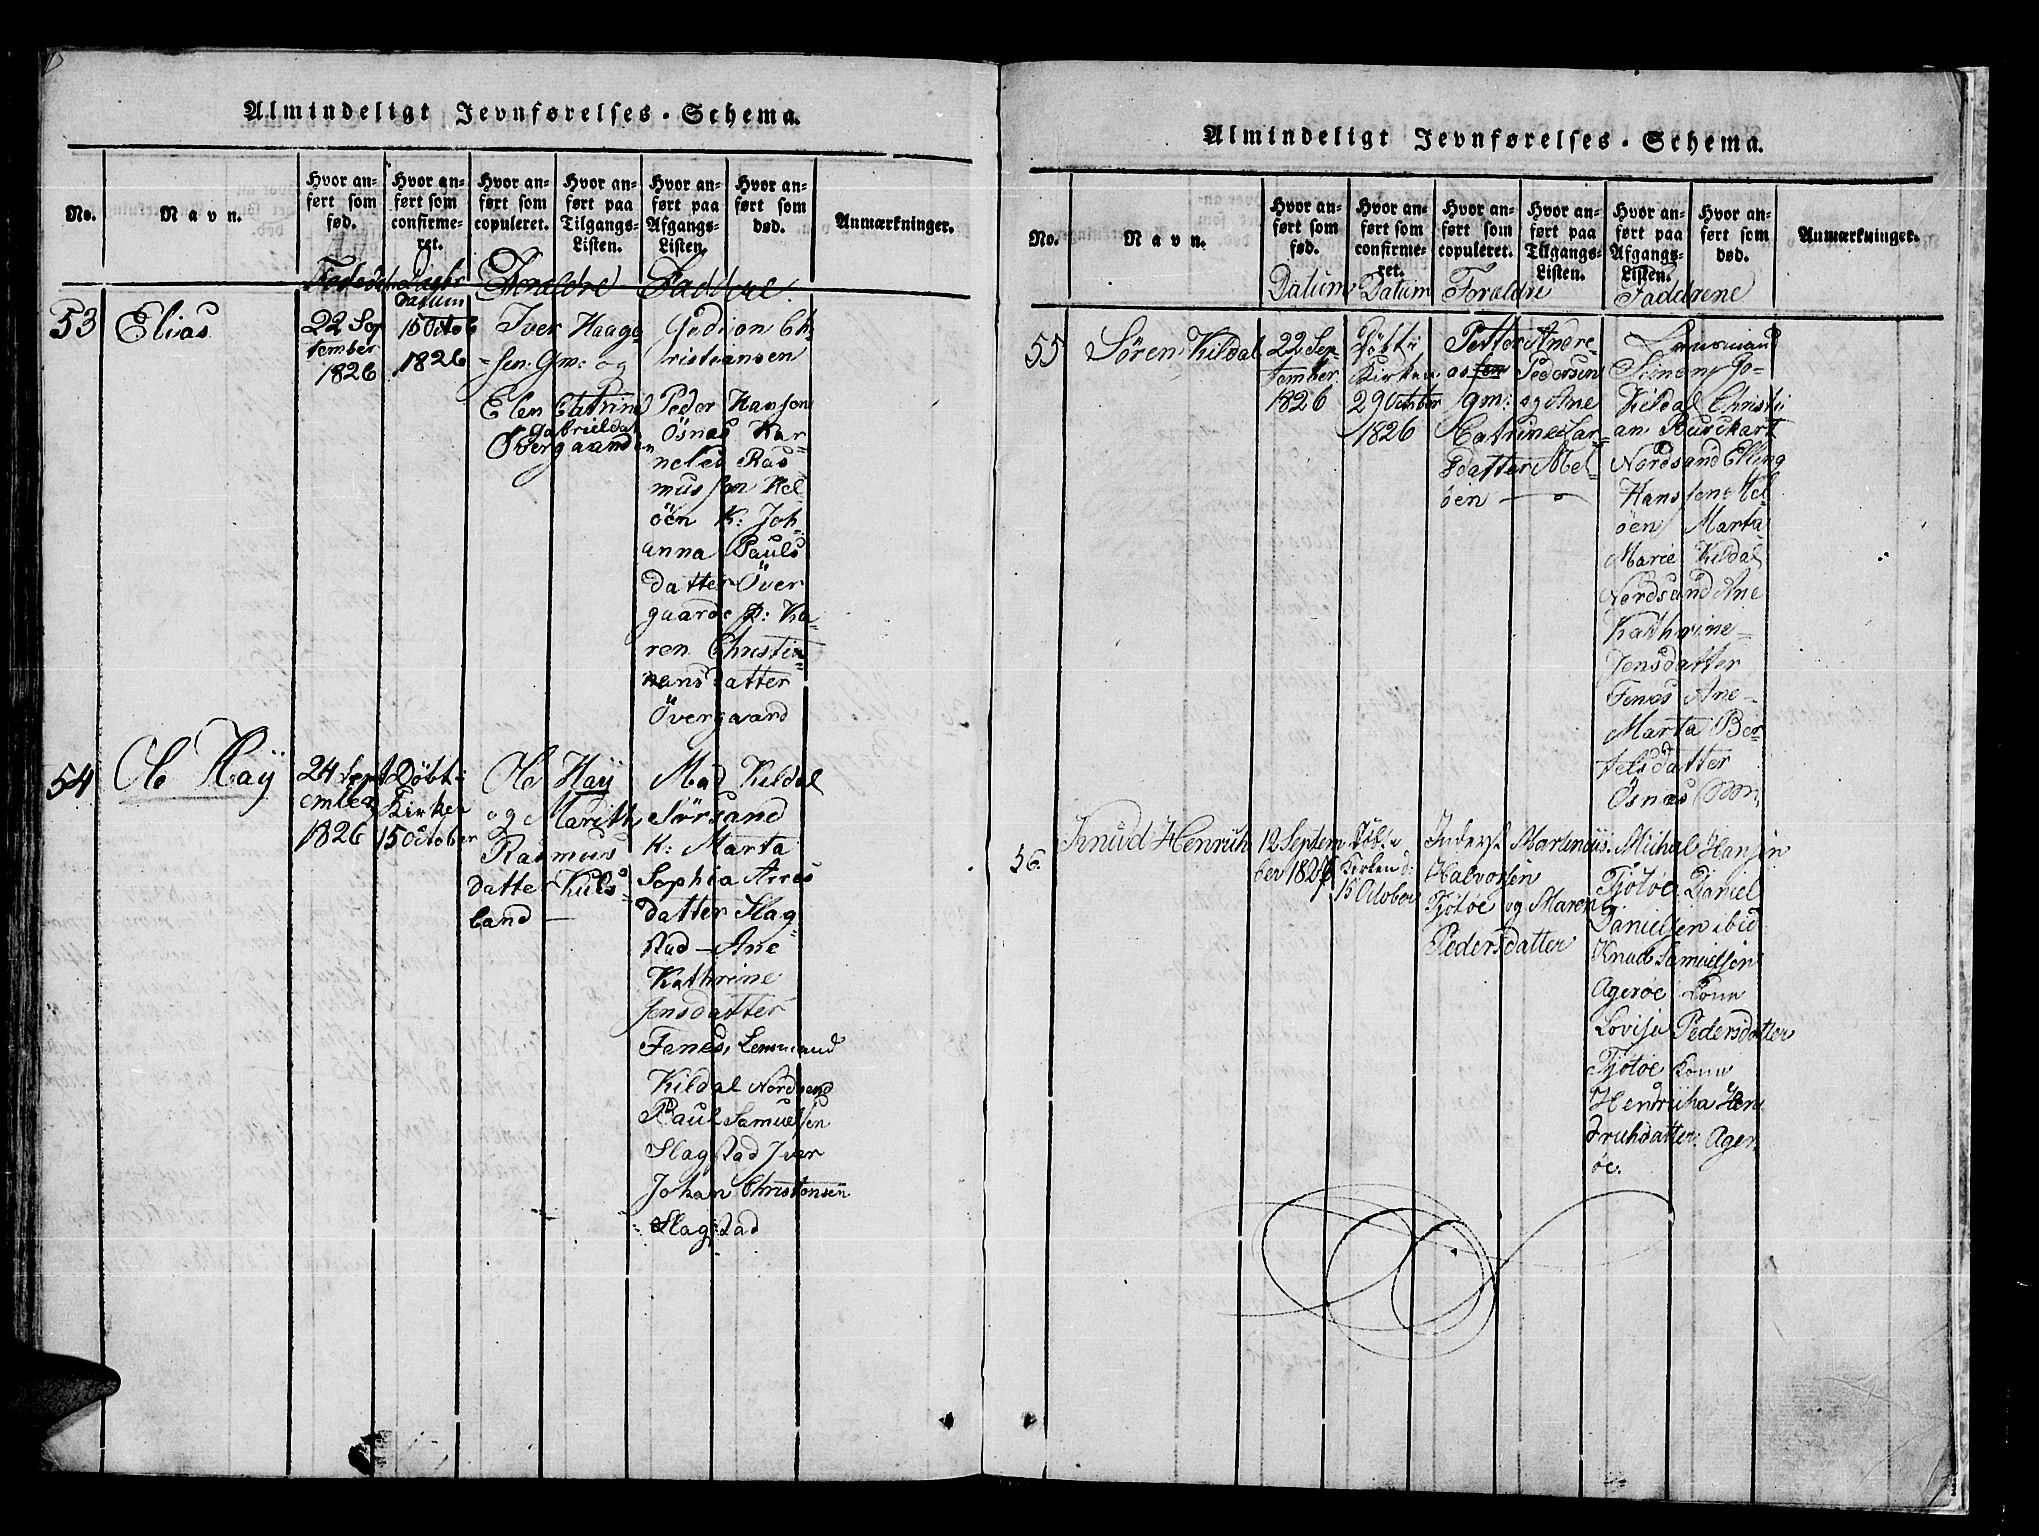 Almindeligt Jevnførelses-Schema.
No.
Navn.
Hvor an-
ført som
fød.
Hvor an-
ført som
confirme-
ret.
Hvor an-
ført som
copuleret.
Hvor an-
ført paa
Tilgangs-
Listen.
Hvor an-
ført paa
Afgangs-
Listen.
Hvor an-
ført som
død.
Anmærkninger.
Datum
Forældre Faddere
53
Elias
22 Sep
tember
1826
15 Octob
1826
Iver Haage
-sen Gm: og
Elen Catrine
Gabrielsdat
Øvergaarden
Gedion Ch
ristiansen
Peder Hansen
Ösnæs Kar
nelius Ras
mussen Mel
öen K: Joh-
anna Pauls
datter Över
gaarde p: Ka-
ren Christia
nansdatter
Övergaard
54
Ole Haÿ
24 Sept
ember
1826
Döbt i
Kirken
15 October
Ole Haÿ
og Marith
Rasmus
datter Kuls
land
Mad Kildal
Sörsand
K: Marta
Sophia Arres
datter Slag
stad - Ane
Kathrine
Jensdatter
Fenes, Lensmand
Kildal Nordsand
Paul Samuelsen
Slagstad Iver
Johan Christensen
Slagstad
Almindeligt Jevnførelses-Schema.
No.
Navn.
Hvor an-
ført som
fød.
Hvor an-
ført som
confirme-
ret.
Hvor an-
ført som
copuleret.
Hvor an-
ført paa
Tilgangs-
Listen.
Hvor an-
ført paa
Afgangs-
Listen.
Hvor an-
ført som
død.
Anmærkninger.
Datum Datum Forældre Faddrene
55
Sören Kildal
22 Sep-
tember
1826
Döbt i
Kirken
29 October
1826
Petter Andre-
as Pedersen
gm: og Ane
Catrine Lar-
sdatter Mel
öen
Lensmand
Simon Go-
Kildal Christi
an Burchart
Nordsand Elling
Hanssen Mel
öen Marta
Marie Kildal
Nordsand Ane
Kathrine
Jensdatter
Fenes Ane
Marta Ber-
telsdatter
Ösnæs
56.
Knud Henrich
12 Septem
ber 1826
Döbt i
Kirken d:
15 October
Inderst Martinus
Halvorsen
Tjötöe og Maren
Pedersdatter
Michal Hansen
Tjötöe Daniel
Danielsen ibid
Knud Samuelsen
Ageröe Kone
Lovise Pedersdatter
Tjötöe Kone
Hendricha Hen
drichsdatter Ager
öe.